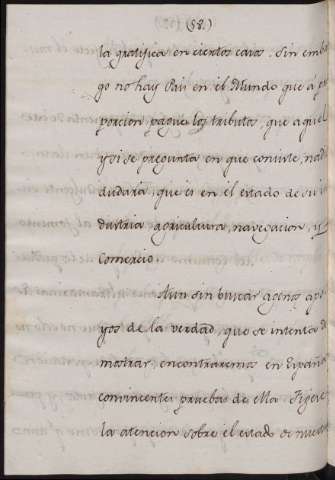 (58.)
la gratifica en ciertos casos. Sin emb
go no hay Pais en el Mundo que á p
porcion pague los tributos, que aquel
y si se pregunta en que consiste, nad
dudará, que es en el estado de su i
dustria agricultura, navegacion, y
Comercio.
Aun sin buscar agenos apo
yos de la verdad, que se intenta d
mostrar, encontraremos en España
convincentes pruebas de ella. Fijese
la atencion sobre el estado de nuest